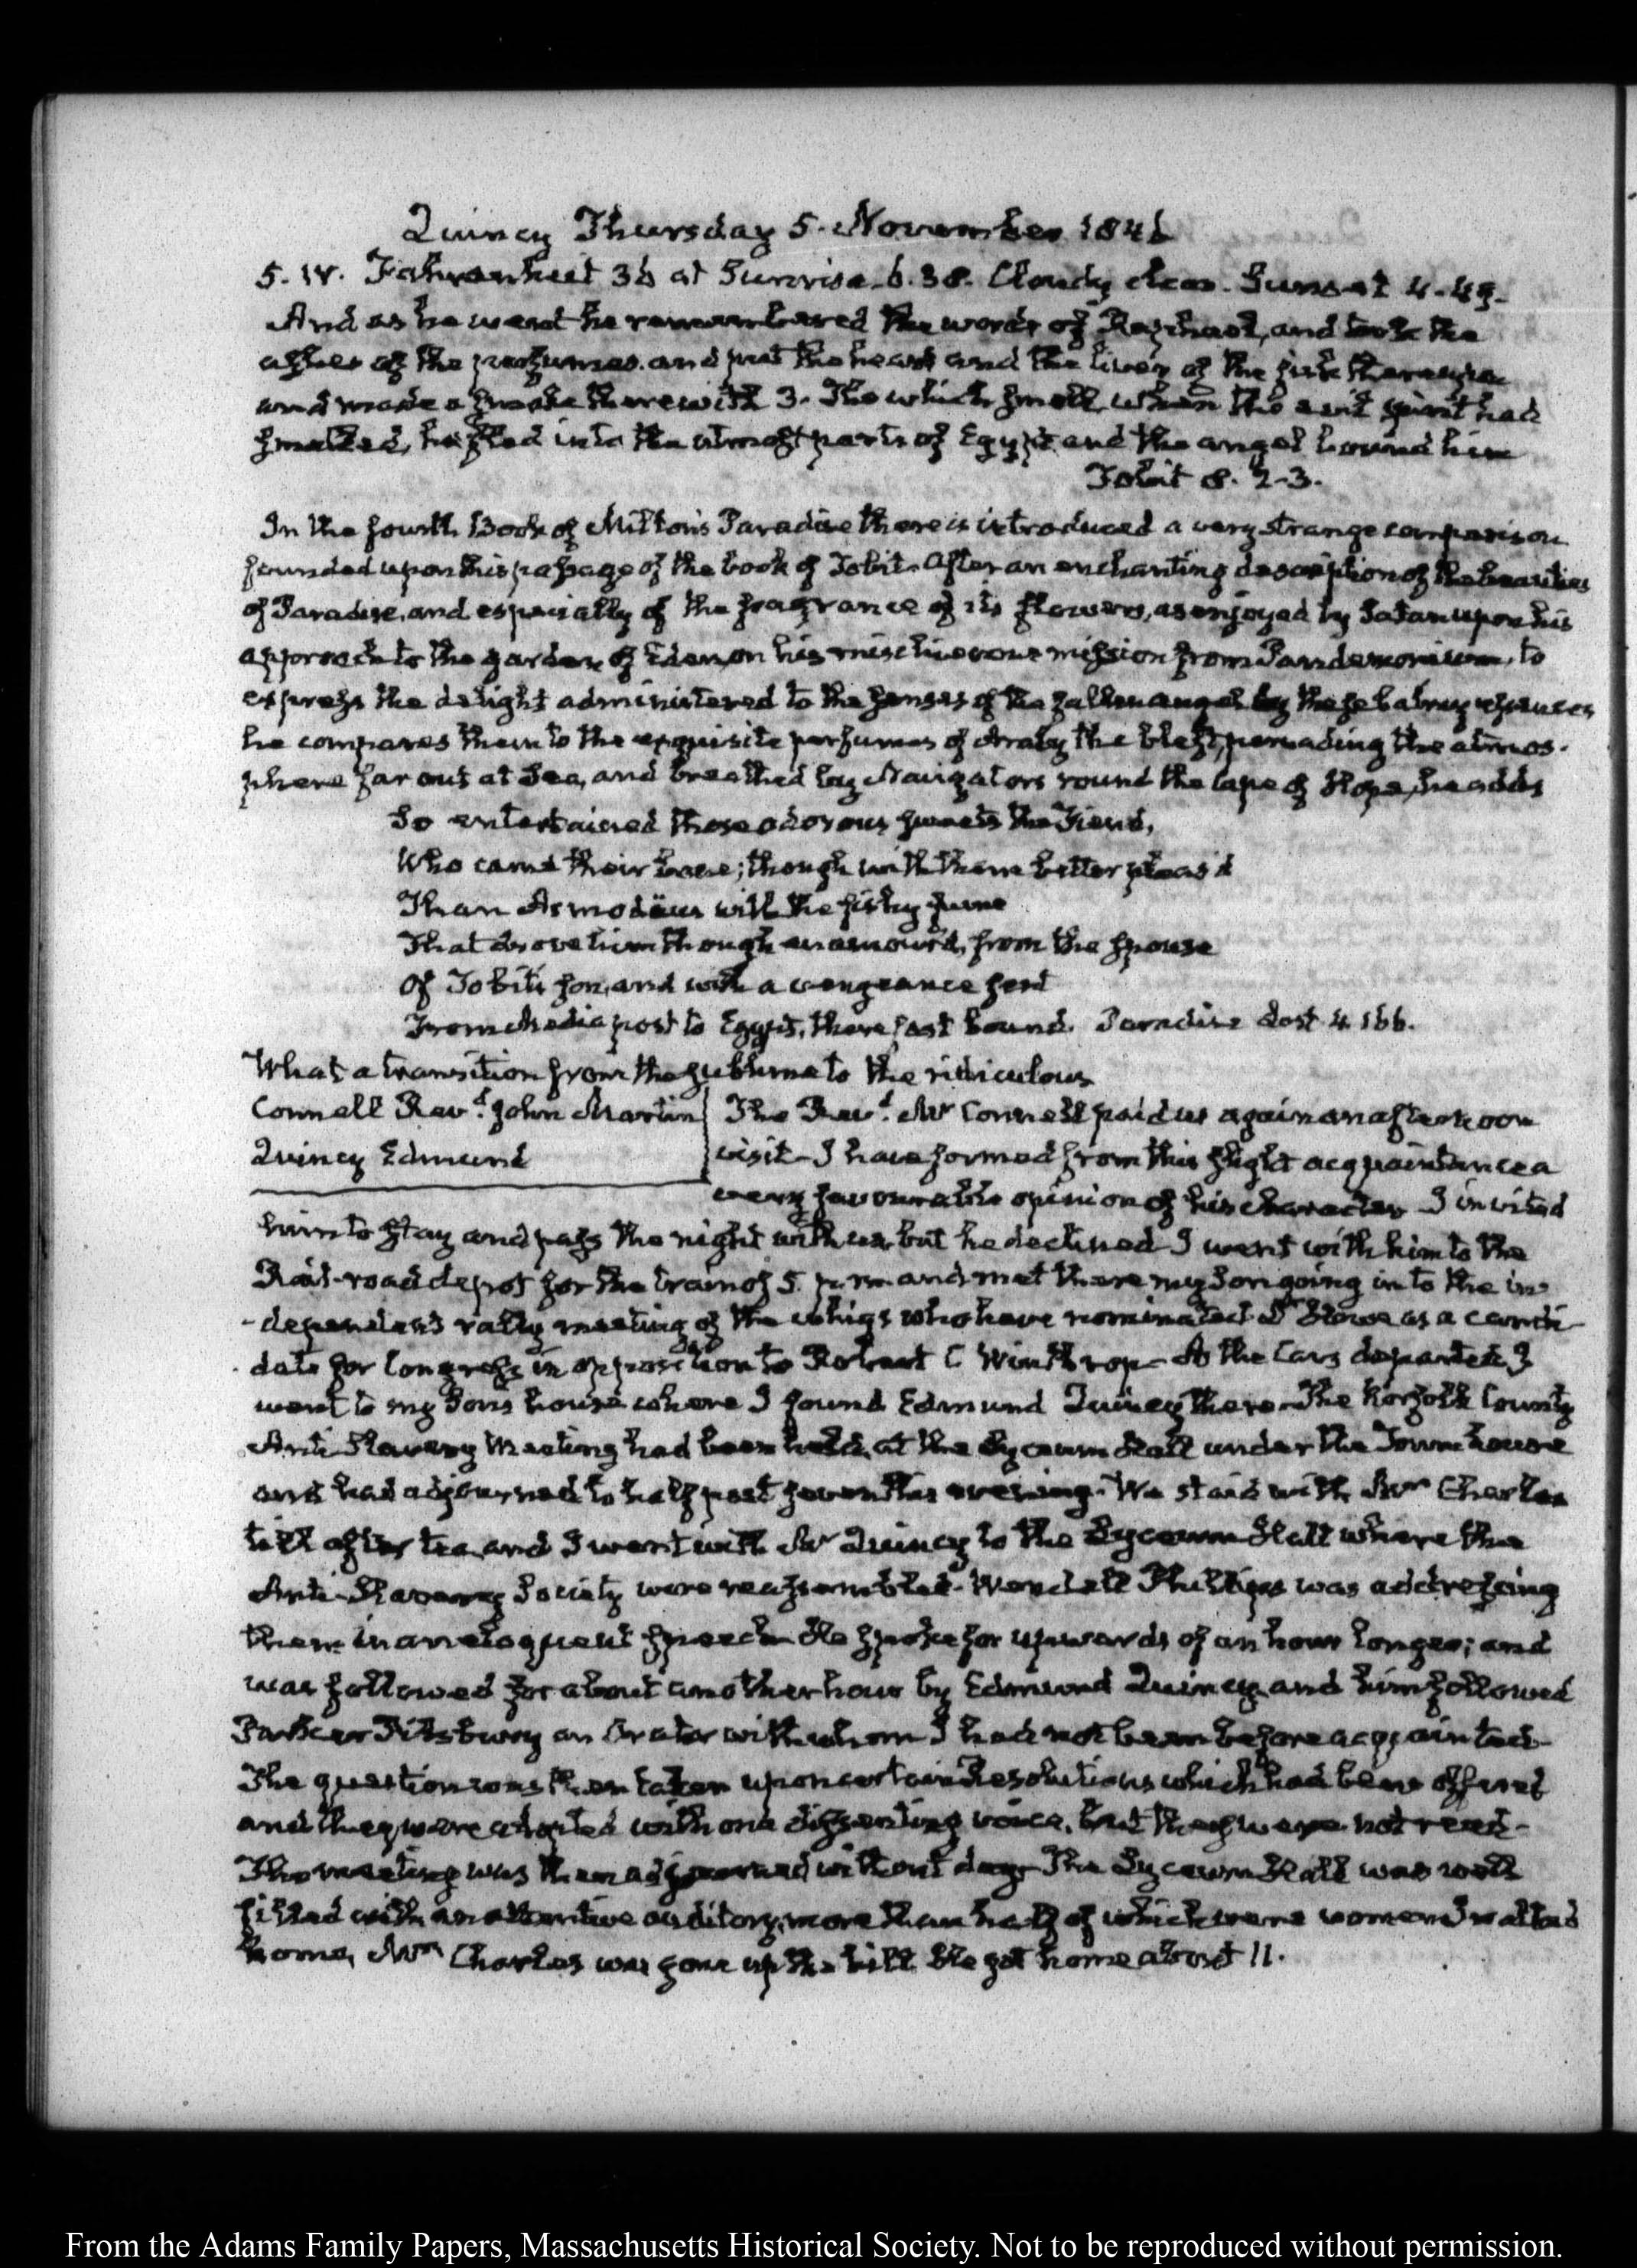 Quincy Thursday 5. November 1846
5. IV. Fahrenheit 36 at Sunrise 6.38. Cloudy clear. Sunset 4-49.
And as he went he remembered the words of Raphael, and took the
ashes of the perfumes. and put the heart and the liver of the fish thereupon
and made a smoke therewith 3. The which smell, when the evil spirit had
smelled, he fled into the utmost parts of Egypt and the angel bound him
Tobit 8. 2-3.
In the fourth Book of Milton's Paradise there is introduced a very strange comparison
founded upon this passage of the book of Tobit. After an enchanting description of the beauties
of Paradise, and especially of the fragrance of its flowers, as enjoyed by Satan upon his
approach to the garden of Eden, on his mischievous mission from Pandemonium, to
express the delight administered to the senses of the fallen angel by these balmy
he compares them to the exquisite perfumes of Araby the blest, pervading the atmos-
phere far out at Sea, and breathed by Navigators round the Cape of Hope, he adds
So entertained those odorous sweets the Fiend,
Who came their bane; though with them better pleas'd
Than Asmodäus with the fishy fume
That drove him though enamour'd, from the spouse
Of Tobit's son, and with a vengeance sent
From Media post to Egypt, there fast bound. Paradise Lost 4. 166.
What a transition from the sublime to the ridiculous
Connell Revd. John Martin The Revd. Mr Connell paid us again an afternoon
Quincy Edmund visit – I have formed from this slight acquaintance a
very favourable opinion of his character I invited
him to stay and pass the night with us, but he declined I went with him to the
Rail-road depot for the train of 5. p.m. and met there my Son going in to the in-
-dependent rally meeting of the whigs who have nominated Dr Howe as a candi-
date for Congress in opposition to Robert C Winthrop – As the Cars departed, I
went to my Son's house where I found Edmund Quincy there – The Norfolk County
Anti-Slavery Meeting had been held, at the Lyceum Hall under the Town house
and had adjourned to half past seven this evening. We staid with Mrs Charles
till after tea and I went with Mr Quincy to the Lyceum Hall where the
Anti-Slavery Society were reassembled – Wendell Phillips was addressing
them in an eloquent speech He spoke for upwards of an hour longer; and
was followed for about another hour by Edmund Quincy and him followed
Parker Pillsbury an Orator with whom I had not been before acquainted –
The question was then taken upon certain Resolutions which had been offered
and they were adopted with one dissenting voice, but they were not read –
The meeting was then adjourned without day – The Lyceum Hall was well
filled with an attentive auditory, more than half of which were women I walked
home, Mrs Charles was gone up the hill She got home about 11.
From the Adams Family Papers, Massachusetts Historical Society. Not to be reproduced without permission.